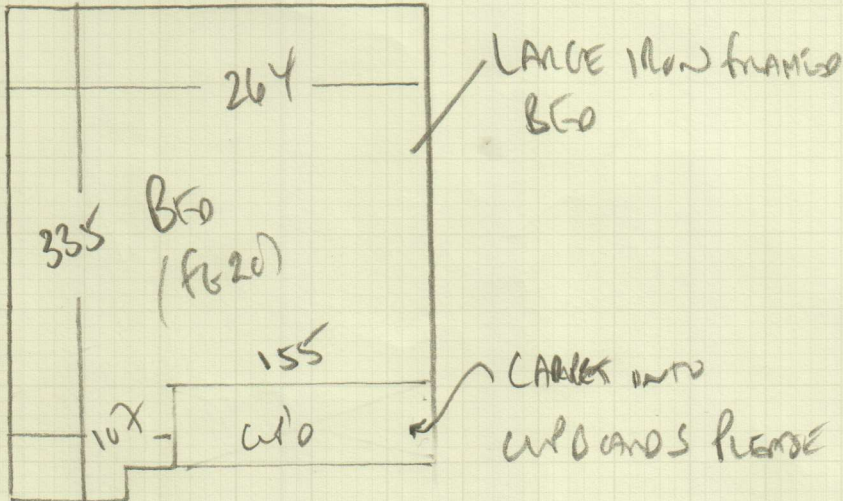 264
LARGE IRON FRAMED
BED
335
BED
155
107
CARPET INTO
CUPBOARDS PLEASE